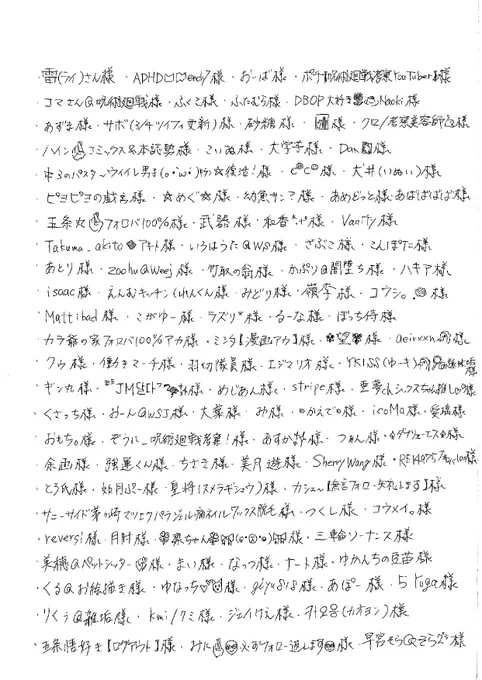 ・雷(ライ)さん様 ・ADHD endy様 ・おーば様 ・ポチ 呪術廻戦考察YouTuber様
・コマさん@呪術廻戦様 ・ふくこ様 ・ふたむら様 ・DBOP大好き Naoki様
・あずま様 ・サボ(3/4ツイフィ更新)様 ・砂糖様 ・様 ・クロ/老黒美容師 様
・ハイン コミックス名本読勢様 ・こいぬ様 ・大学芋様 ・Dan様
・中3のパスタ〜ウイイレ男子(o・ω・) 復活!様 ・様 ・犬井(いぬい)様
・ピヨピヨの戯言様 ・☆めぐ☆様 ・幼魚サン?様 ・あめどっと様・あばばばば様
・五条丸 フォロバ100%様 ・武器様 ・和香 様 ・Vanity様
・Takuma_akito アキト様 ・いろはうた@WS様 ・ざぶこ様 ・こんぽた様
・あとり様 ・zoohu@Weej様 ・竹取の翁様 ・かぷり@闇堕ち様 ・ハキア様
・isaac様 ・えんむキッチン(れんくん様 ・みどり様 ・嶺李様 ・コウシ。様
・Mattibad様 ・こがゆー様 ・ラズリ*様 ・るーな様 ・ぼっち侍様
・カラ爺の家フォロバ100%アカ様 ・ミンタ【漫画アカ】様 ・望 様 ・aeirxxn 様
・クゥ様 ・働きマーチ様 ・羽切隊員様 ・エジマリオ様 ・YKISS(ゆーキ) 様
・ギン丸様 ・JM 様 ・めじあん様 ・stripe様 ・悪夢ch シックスちゃん推し 様
・くさっち様 ・おーん@WSJ様 ・大葉様 ・み様 ・○かえで○様 ・icoMa様 ・愛瑞様
・おもち。様 ・ぞうに_呪術廻戦考察!様 ・あすか 様 ・つぁん様 ・ 様
・余画様 ・強運くん様 ・ちさき様 ・美月遊様 ・Sherry Wang様 ・
・とう氏様 ・如月ぷー様 ・皇将(スメラギショウ)様 ・カシュー【無言フォロー失礼します】様
・サニーサイド茅ヶ崎マツエクパラジェル ネイルワックス脱毛様 ・つくし様 ・コウメイ。様
・reversi様 ・月財様 ・ ちゃん 様 ・三輪ソーナンス様
・美穂@ペットシッター 様 ・まい様 ・なっつ様 ・ナート様 ・ゆかんちの豆苗様
・くる@お絵描き様 ・ゆなっち 様 ・giyu8i8様 ・あぽー様 ・ら ruga様
・りくぅ@雑垢様 ・kmi/クミ様 ・ジェイけえ様 ・카오욘(カオヨン)様
・五条悟好き【ログアウト】様 ・みに 必ずフォロー返します 様 ・早宮そら@そらダ 様